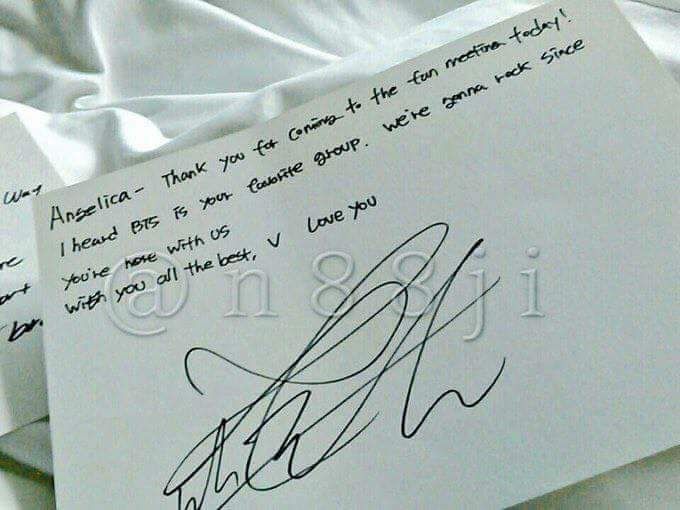 Angelica - Thank you for coming to the fan meeting today!
I heard BTS is your favorite group. We're gonna rock since
You're here with us
Wish you all the best, V Love you
@n88ji
way